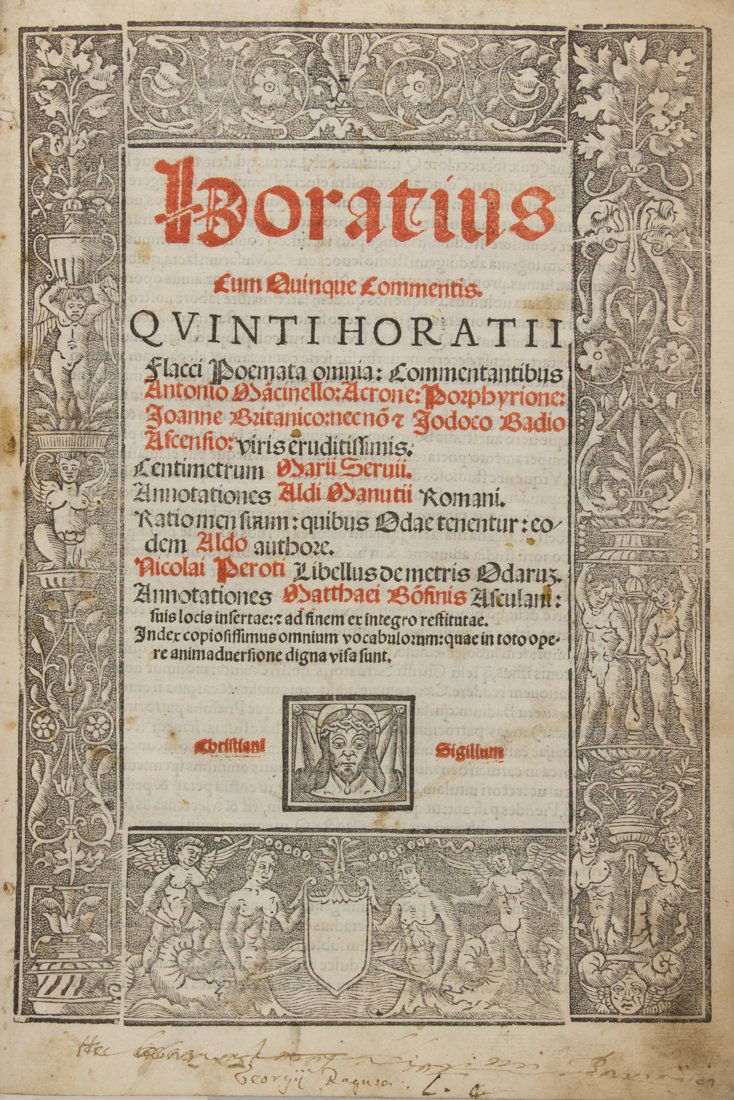 Horatius
Cum Quinque Commentis.
QVINTI HORATII
Flacci Poemata omnia: Commentantibus
Antonio Mãcinello: Acrone: Porphyrione:
Joanne Britanico: necnõ ⁊ Jodoco Badio
Ascensio: viris eruditissimis.
Centimetrum Marii Seruii.
Annotationes Aldi Manutii Romani.
Ratio mensuum: quibus Odae tenentur: eo/
dem Aldo authore.
Nicolai Peroti Libellus de metris Odaruꝫ.
Annotationes Matthaei Bõfinis Asculani:
suis locis insertae: ⁊ ad finem ex integro restitutae.
Index copiosissimus omnium vocabulorum: quae in toto ope-
re animaduersione digna visa sunt.
Christiani Sigillum
Georgij Ragusa. L. a